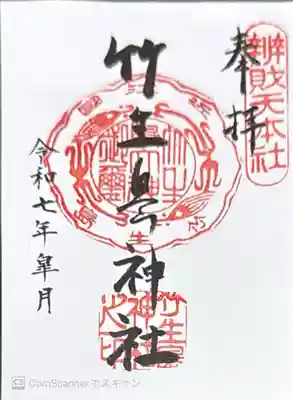 辨財天本社
奉拝
竹生島神社
竹生島神社之印
令和七年皐月
CS CamScanner でスキャン